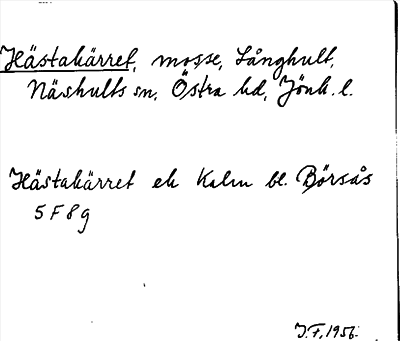 Hästakärret, mosse, Långhult,
Näshults sn, Östra hd, Jönk. l.
Hästakärret ek Kalm bl. Börsås
5 F 8 g
J.F. 1956.